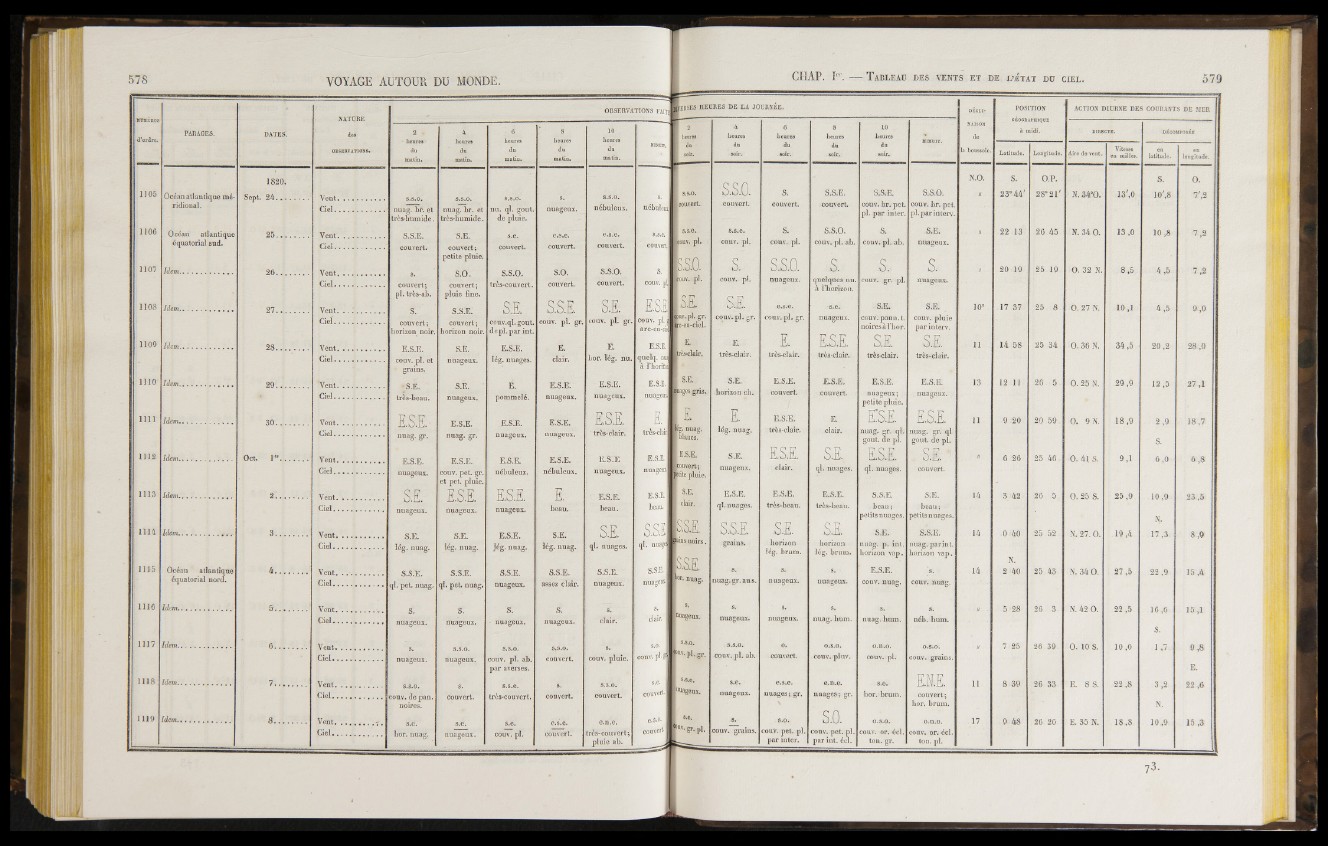 578
VOYAGE AUTOUR DU MONDE.
NUMÉROS d'ordre. PARAGES. DATES. NATURE des OBSERVATIONS. OBSERVATIONS
2 heures du matin. 4 heures du matin. 6 heures du matin. 8 heures du matin. 10 heures du matin.
1820.
1105 Océan atlantique méridional. Sept. 24 Vent S.S.O. S.S.O. S.S.O. S. S.S.O. S.
Ciel nuag. br. et très-humide. nuag. br. et très-humide. nu. ql. gout. de pluie. nuageux. nébuleux.
1106 Océan atlantique équatorial sud. 25 Vent S.S.E. S.E. S.E. E.S.E. E.S.E. S.S.E.
Ciel couvert. couvert; petite pluie. couvert. couvert. couvert.
1107 Idem 26 Vent S. S.O. S.S.O. S.O. S.S.O. S.
Ciel couvert; pl. très-ab. couvert; pluie fine. très-couvert. couvert. couvert.
1108 Idem 27 Vent S. S.S.E. S.E. S.S.E. S.E. E.S.E.
Ciel couvert; horizon noir. couvert; horizon noir. couv. ql. gout. de pl. par int. couv. pl. gr. couv. pl. gr.
1109 Idem 28 Vent E.S.E. S.E. E.S.E. E. E. E.S.E.
Ciel couv. pl. et grains. nuageux. lég. nuages. clair. hor. lég. nu.
1110 Idem 29 Vent S.E. S.E. E. E.S.E. E.S.E. E.S.E.
Ciel très-beau. nuageux. pommelé. nuageux. nuageux.
1111 Idem 30 Vent E.S.E. E.S.E. E.S.E. E.S.E. E.S.E. E.
Ciel nuag. gr. nuag. gr. nuageux. nuageux. très-clair.
1112 Idem Oct. 1er Vent E.S.E. E.S.E. E.S.E. E.S.E. E.S.E. E.S.E.
Ciel nuageux. couv. pet. gr. et pet. pluie. nébuleux. nébuleux. nuageux.
1113 Idem 2 Vent S.E. E.S.E. E.S.E. E. E.S.E. E.S.E.
Ciel nuageux. nuageux. nuageux. beau. beau. beau.
1114 Idem 3 Vent S.E. S.E. E.S.E. S.E. S.E. S.S.E.
Ciel lég. nuag. lég. nuag. lég. nuag. lég. nuag. ql. nuages.
1115 Océan atlantique équatorial nord. 4 Vent S.S.E. S.S.E. S.S.E. S.S.E. S.S.E. S.S.E.
Ciel ql. pet. nuag. ql. pet. nuag. nuageux. assez clair. nuageux.
1116 Idem 5 Vent S. S. S. S. S. S.
Ciel nuageux. nuageux. nuageux. nuageux. clair. clair.
1117 Idem 6 Vent S. S.S.O. S.S.O. S.S.O. S.
Ciel nuageux. nuageux. couv. pl. ab. par averses. couvert. couv. pluie.
1118 Idem 7 Vent S.S.O. S. S.S.E. S. S.S.E.
Ciel couv. de pan. noires. couvert. très-couvert. couvert. couvert.
1119 Idem 8 Vent S.E. S.E. S.E. E.S.E. E.N.E.
Ciel hor. nuag. nuageux. couv. pl. couvert. très-couvert; pluie ab.
CHAP. Ier. — TABLEAU DES VENTS ET DE L'ÉTAT DU CIEL.
579
HEURES DE LA JOURNÉE. POSITION GÉOGRAPHIQUE à midi. ACTION DIURNE DES COURANTS DE MER
2 heures du soir. 4 heures du soir. 6 heures du soir. 8 heures du soir. 10 heures du soir. MINUIT. Latitude. Longitude. DIRECTE. Aire du vent. Vitesse en milles. DÉCOMPOSÉE en latitude. en longitude.
N.O. S. O.P. S. O.
S.S.O. S.S.O. S. S.S.E. S.S.E. S.S.O. 23°44′ 28°21′ N. 34°O. 13′,0 10′,8 7′,2
couvert. couvert. couvert. couvert. couv. br. pet. pl. par inter. couv. br. pet. pl. par interv.
S.S.O. S.S.E. S. S.S.O. S. S.E. 22 13 26 45 N. 34 O. 13,0 10,8 7,2
couv. pl. couv. pl. couv. pl. couv. pl. ab. couv. pl. ab. nuageux.
S.S.O. S. S.S.O. S. S. S. 20 10 25 10 O. 32 N. 8,5 4,5 7,2
couv. pl. couv. pl. nuageux. quelques nu. à l'horizon. couv. gr. pl. nuageux.
S.E. S.E. E.S.E. S.E. S.E. S.E. 10° 17 37 25 8 O. 27 N. 10,1 4,5 9,0
couv. pl. gr. arc-en-ciel. couv. pl. gr. couv. pl. gr. nuageux. couv. pann. t. noires à l'hor. couv. pluie par interv.
E. E. E. E.S.E. S.E. S.E. 11 14 58 25 34 O. 36 N. 34,5 20,2 28,0
très-clair. très-clair. très-clair. très-clair. très-clair. très-clair.
S.E. S.E. E.S.E. E.S.E. E.S.E. E.S.E. 13 12 11 26 5 O. 25 N. 29,9 12,5 27,1
nuages gris. horizon ch. couvert. couvert. nuageux; petite pluie. nuageux.
E. E. E.S.E. E. E.S.E. E.S.E. 11 9 20 20 59 O. 9 N. 18,9 2,9 18,7
lég. nuag. lég. nuag. très-clair. clair. nuag. gr. ql. gout. de pl. nuag. gr. ql. gout. de pl.
S.
E.S.E. S.E. E.S.E. S.E. E.S.E. S.E. 6 26 25 46 O. 41 S. 9,1 6,0 6,8
couvert; petite pluie. nuageux. clair. ql. nuages. ql. nuages. couvert.
S.E. E.S.E. E.S.E. E.S.E. S.S.E. S.E. 14 3 42 26 5 O. 25 S. 25,9 10,9 23,5
clair. ql. nuages. très-beau. très-beau. beau; petits nuages. beau; petits nuages.
N.
S.S.E. S.S.E. S.E. S.E. S.E. S.S.E. 14 0 40 25 52 N. 27. O. 19,4 17,3 8,9
grains noirs. grains. horizon lég. brum. horizon lég. brum. nuag. p. int. horizon vap. nuag. par int. horizon vap.
N.
S.S.E. S. S. S. E.S.E. S. 14 2 40 25 43 N. 34 O. 27,5 22,9 15,4
hor. nuag. nuag. gr. aus. nuageux. nuageux. couv. nuag. couv. nuag.
S. S. S. S. S. S. 5 28 26 3 N. 42 O. 22,5 16,6 15,1
nuageux. nuageux. nuageux. nuag. hum. nuag. hum. néb. hum.
S.
S.S.O. S.S.O. O. O.S.O. O.N.O. O.S.O. 7 25 26 39 O. 10 S. 10,0 1,7 9,8
couv. pl. gr. couv. pl. ab. couvert. couv. pluv. couv. pl. couv. grains.
E.
S.S.E. S.E. E.S.E. E.N.E. S.E. E.N.E. 11 8 39 26 33 E. 8 S. 22,8 3,2 22,6
nuageux. nuageux. nuages; gr. nuages; gr. hor. brum. couvert; hor. brum.
N.
S.E. S. S.O. S.O. O.S.O. O.N.O. 17 9 48 26 26 E. 35 N. 18,8 10,9 15,3
couv. gr. pl. couv. grains. couv. pet. pl. par inter. couv. pet. pl. par int. écl. couv. or. écl. ton. gr. couv. or. écl. ton. pl.
73.